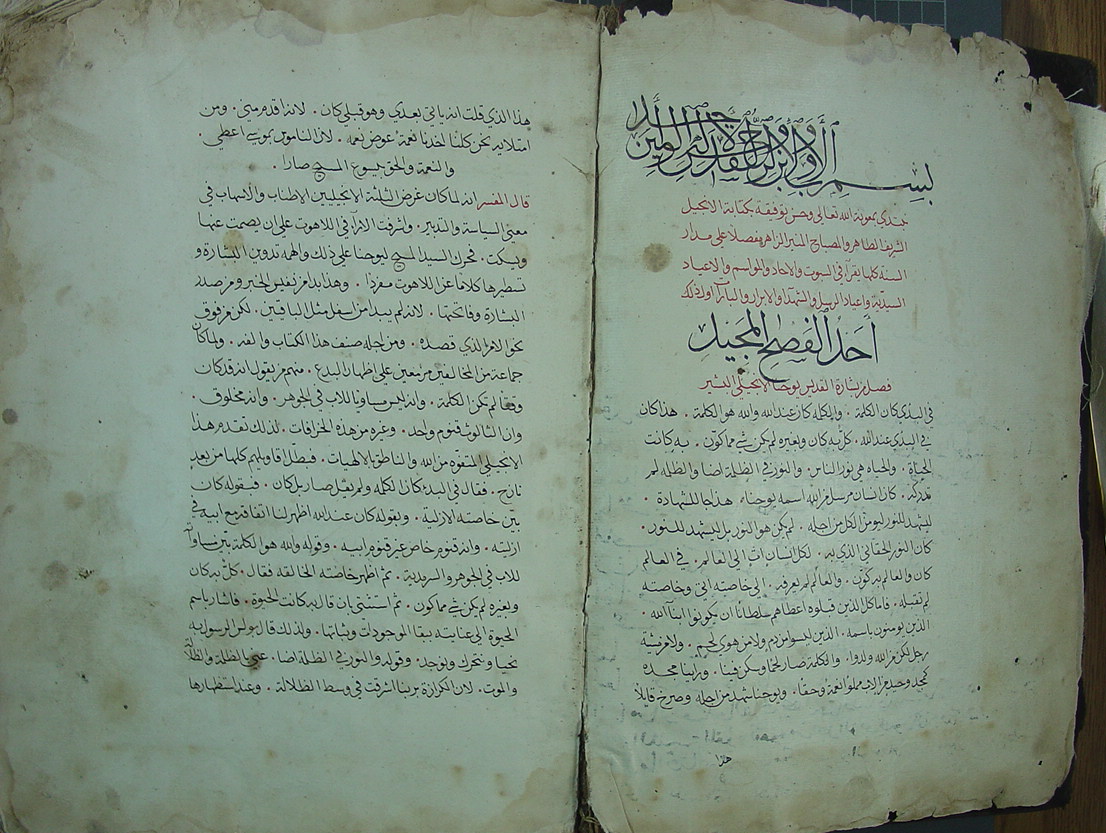 بسم الاب والابن والروح القدس الاله الواحد امين
نبتدي بمعونة الله تعالى وحسن توفيقه بكتابة الانجيل
الشريف الطاهر والمصباح المنير الزاهر مفصلاً على مدار
السنة كلها يقرا في السبوت والاحاد والمواسم والاعياد
السيدية واعياد الرسل والشهدآ والابرار والبآر اول ذلك
أحد الفصح المجيد
فصل من بشارة القديس يوحنا الانجيلي البشير
في البدي كان الكلمة . والكلمه كان عند الله والله هو الكلمة . هذا كان
في البدي عند الله . كلٌ به كان وبغيره لم يكن شي مما كوّن . به كانت
الحياة . والحياه هي نور الناس . والنور في الظلمة اضا والظلمه لم
تدركه . كان انسان مرسل من الله اسمه يوحنا . هذا جا للشهادة .
ليشهد للنور ليومن الكل من اجله . لم يكن هو النور بل ليشهد للنور .
كان النور الحقاني الذي ينير لكل انسان اتٍ الى العالم . في العالم
كان والعالم به كون . والعالم لم يعرفه . الى خاصته اتى وخاصته
لم تقبله . فاما كل الذين قبلوه اعطاهم سلطانًا ان يكونوا ابنآ الله
الذين يومنون باسمه . الذين ليسوا من دم ولا من هوى لحم . ولا من مشية
رجل لكن من الله ولدوا . والكلمة صار لحمًا وسكن فينا . وراينا مجده
كمجد وحيد من الاب مملوا نعمةً وحقًا . ويوحنا شهد من اجله وصرخ قايلاً
هذا
هذا الذي قلت انه ياتي بعدي وهو قبلي كان . لانه اقدم مني . ومن
امتلايه نحن كلنا اخذنا نعمةً عوض نعمه . لان الناموس بموسى اعطي .
والنعمة والحق بيسوع المسيح صارا .
قال المفسر انه لما كان غرض الثلثة الانجيليين الاطناب والاسهاب في
معنى السياسة والتدبير . واشرفت الارآ في اللاهوت على ان يصمت عنها
ويسكت . فحرك السيد المسيح ليوحنا على ذلك والهمه تدوين البشارة و
تسطيرها كلامًا عن اللاهوت مفردًا . وهذا بدا من نفس الخبر ومن صدر
البشارة وفاتحتها . لانه لم يبدا من اسفل مثل الباقيين . لكن من فوق
نحو الامر الذي قصده . ومن اجله صنف هذا الكتاب والفه . ولما كان
جماعة من المخالفين مزمعين على اظهار البدع . منهم من يقول انه قد كان
وقت لم تكن الكلمة . وانه ليس مساويًا للاب في الجوهر . وانه مخلوق .
وان الثالوث قنوم واحد . وغيره من هذه الخرافات . لذلك تقدم هذا
الانجيلي المتفوه من الله والناطق بالالهيات . فبطل اقاويلهم كلها من بعد
نازح . فقال في البدء كان الكلمه ولم يقل صار بل كان . فبقوله كان
بيّن خاصته الازلية . وبقوله كان عند الله اظهر لنا اتفاقه مع ابيه في
ازليته . وانه قنوم خاص غير قنوم ابيه . وقوله والله هو الكلمة بيّن مساواته
للاب في الجوهر والسرمدية . ثم اظهر خاصته الخالقه فقال . كلٌ به كان
وبغيره لم يكن شي مما كون . ثم استثنى بان قال به كانت الحيوة . فاشار باسم
الحيوة الى عنايته ببقا الموجودات وثباتها . ولذلك قال بولس الرسول به
نحيا ونتحرك ونوجد . وقوله والنور في الظلمة اضا . عنى بالظلمة
والموت . لان الكرازة بربنا اشرقت في وسط الظلالة . وعند استظهارها